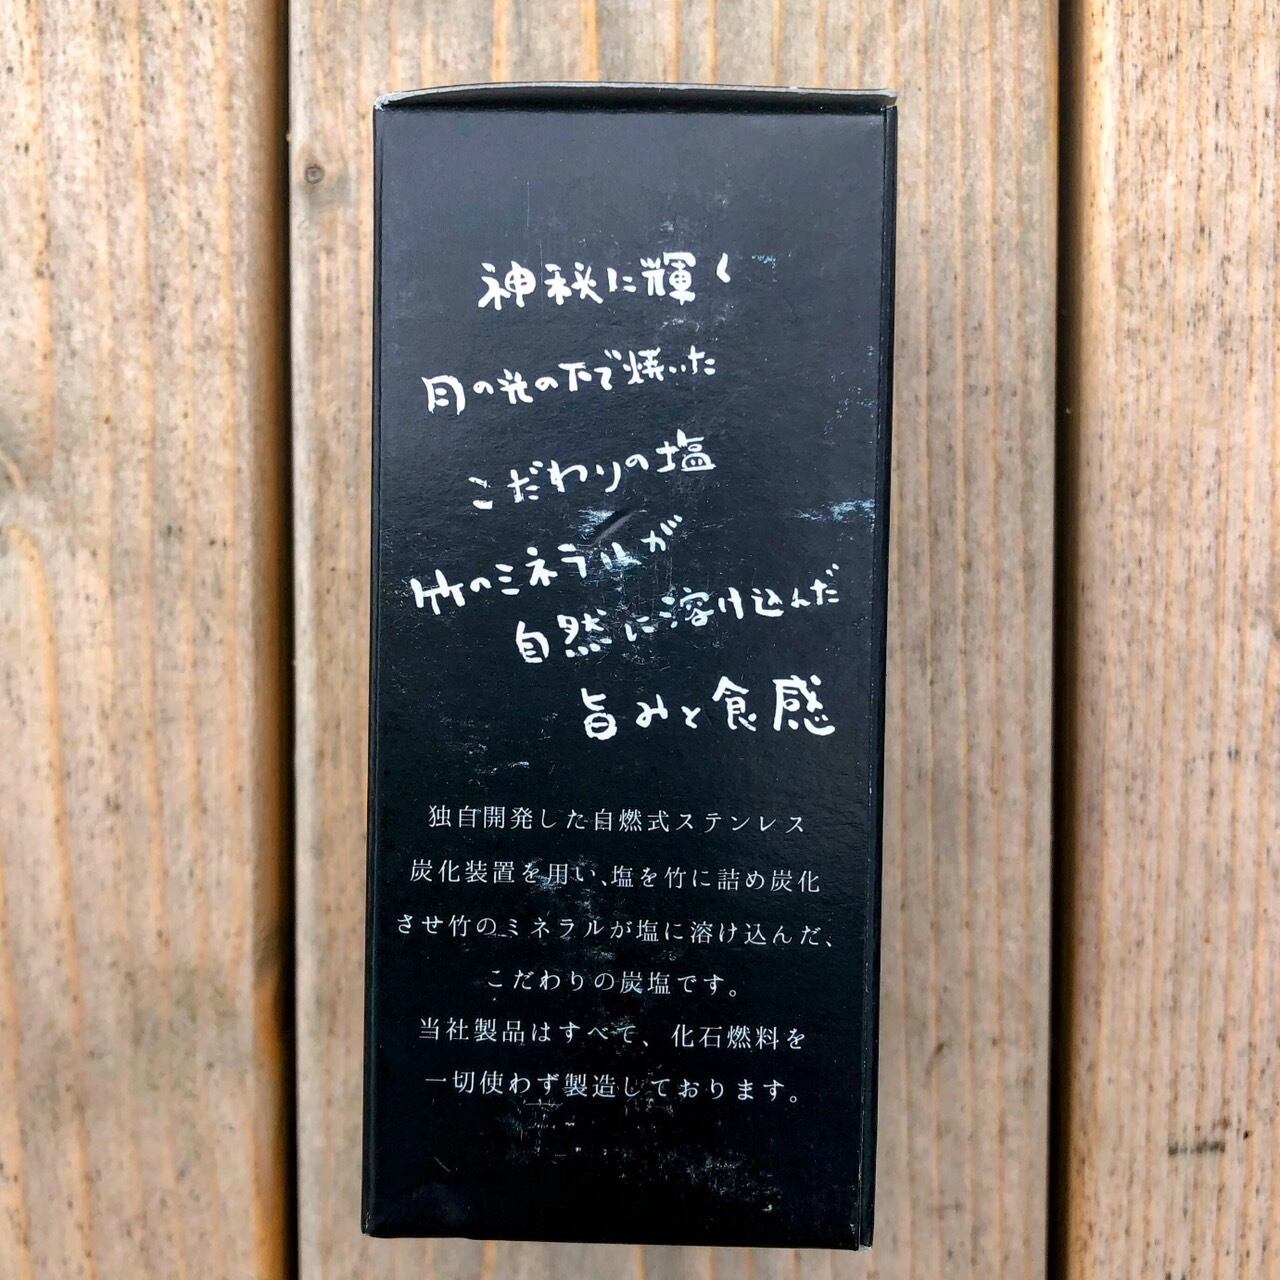 神秘に輝く
月の光の下で焼いた
こだわりの塩
竹のミネラルが
自然に溶け込んだ
旨みと食感
独自開発した自燃式ステンレス
炭化装置を用い、塩を竹に詰め炭化
させ竹のミネラルが塩に溶け込んだ、
こだわりの炭塩です。
当社製品はすべて、化石燃料を
一切使わず製造しております。